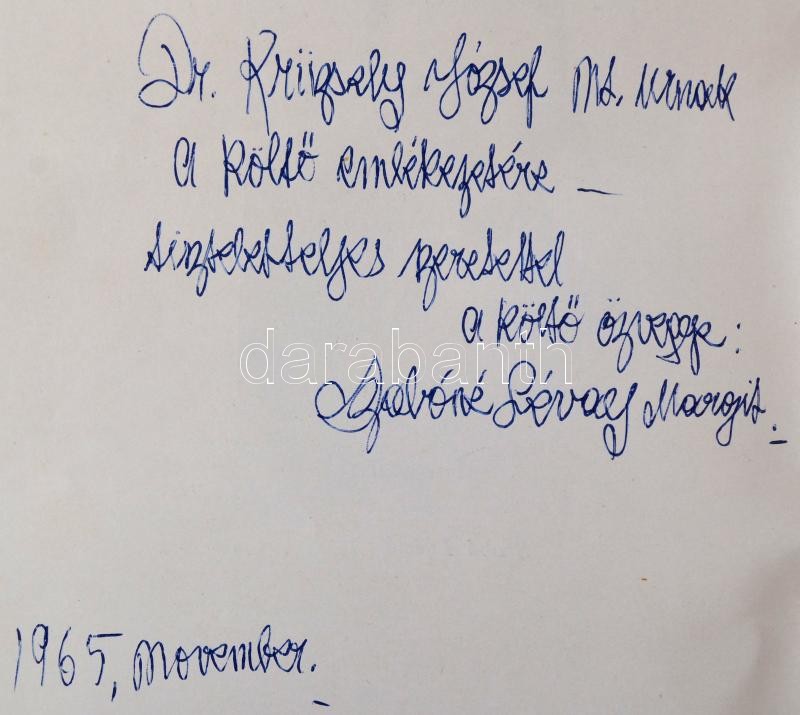 Dr. Krüzsely József Mt. Urnak
a költő emlékezetére —
tisztelettelyes szeretettel
a költő özvegye:
darabanth
Szabóné Lévay Margit.
1965, November.